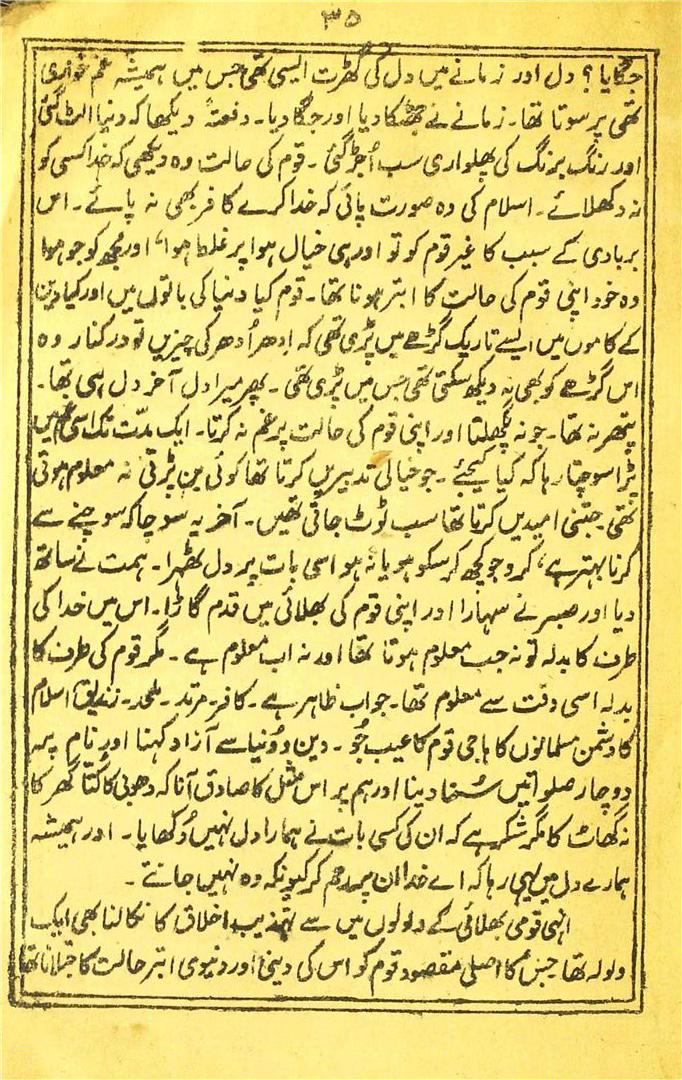 ۳۵
جگایا؟ دل اور زمانے میں دل کی گھڑت ایسی تھی جس میں ہمیشہ غم خواری
تھی پر سوتا تھا۔ زمانے نے جھٹکا دیا اور جگا دیا۔ دفعتہً دیکھا کہ دنیا الٹ گئی
اور رنگ برنگ کی پھلواری سب اُجڑ گئی۔ قوم کی حالت وہ دیکھی کہ خدا کسی کو
نہ دکھلائے۔ اسلام کی وہ صورت پائی کہ خدا کرے کافر بھی نہ پائے۔ اس
بربادی کے سبب کا غیر قوم کو تو اور ہی خیال ہوا پر غلط ہوا، اور مجھ کو جو ہوا
وہ خود اپنی قوم کی حالت کا ابتر ہونا تھا۔ قوم کیا دنیا کی باتوں میں اور کیا دین
کے کاموں میں ایسے تاریک گڑھے میں پڑی تھی کہ اِدھر اُدھر کی چیزیں تو درکنار وہ
اس گڑھے کو بھی نہ دیکھ سکتی تھی جس میں پڑی تھی۔ پھر میرا دل آخر دل ہی تھا۔
پتھر نہ تھا۔ جو نہ پگھلتا اور اپنی قوم کی حالت پر غم نہ کرتا۔ ایک مدّت تک اسی غم میں
پڑا سوچتا رہا کہ کیا کیجئے۔ جو خیالی تدبیریں کرتا تھا کوئی بن پڑتی نہ معلوم ہوتی
تھی جتنی امیدیں کرتا تھا سب ٹوٹ جاتی تھیں۔ آخر یہ سوچا کہ سوچنے سے
کرنا بہتر ہے، کرو جو کچھ کر سکو ہو یا نہ ہو اسی بات پر دل ٹھہرا۔ ہمت نے ساتھ
دیا اور صبر نے سہارا اور اپنی قوم کی بھلائی میں قدم گاڑا۔ اس میں خدا کی
طرف کا بدلہ تو نہ جب معلوم ہوتا تھا اور نہ اب معلوم ہے۔ مگر قوم کی طرف کا
بدلہ اسی وقت سے معلوم تھا۔ جو اب ظاہر ہے۔ کافر۔ مرتد۔ ملحد۔ زندیق۔ اسلام
کا دشمن مسلمانوں کا ہاجی قوم کا عیب جُو۔ دین و دُنیا سے آزاد کہنا اور نام پر
دو چار صلواتیں سُنا دینا اور ہم پر اس مثل کا صادق آنا کہ دھوبی کا کُتّا گھر کا
نہ گھاٹ کا مگر شکر ہے کہ ان کی کسی بات نے ہمارا دل نہیں دُکھایا۔ اور ہمیشہ
ہمارے دل میں یہی رہا کہ اے خدا ان پر رحم کر کیونکہ وہ نہیں جانتے۔
انہی قومی بھلائی کے ولولوں میں سے تہذیب اخلاق کا نکالنا بھی ایک
ولولہ تھا جس کا اصلی مقصود قوم کو اس کی دینی اور دنیوی ابتر حالت کا جتلانا تھا